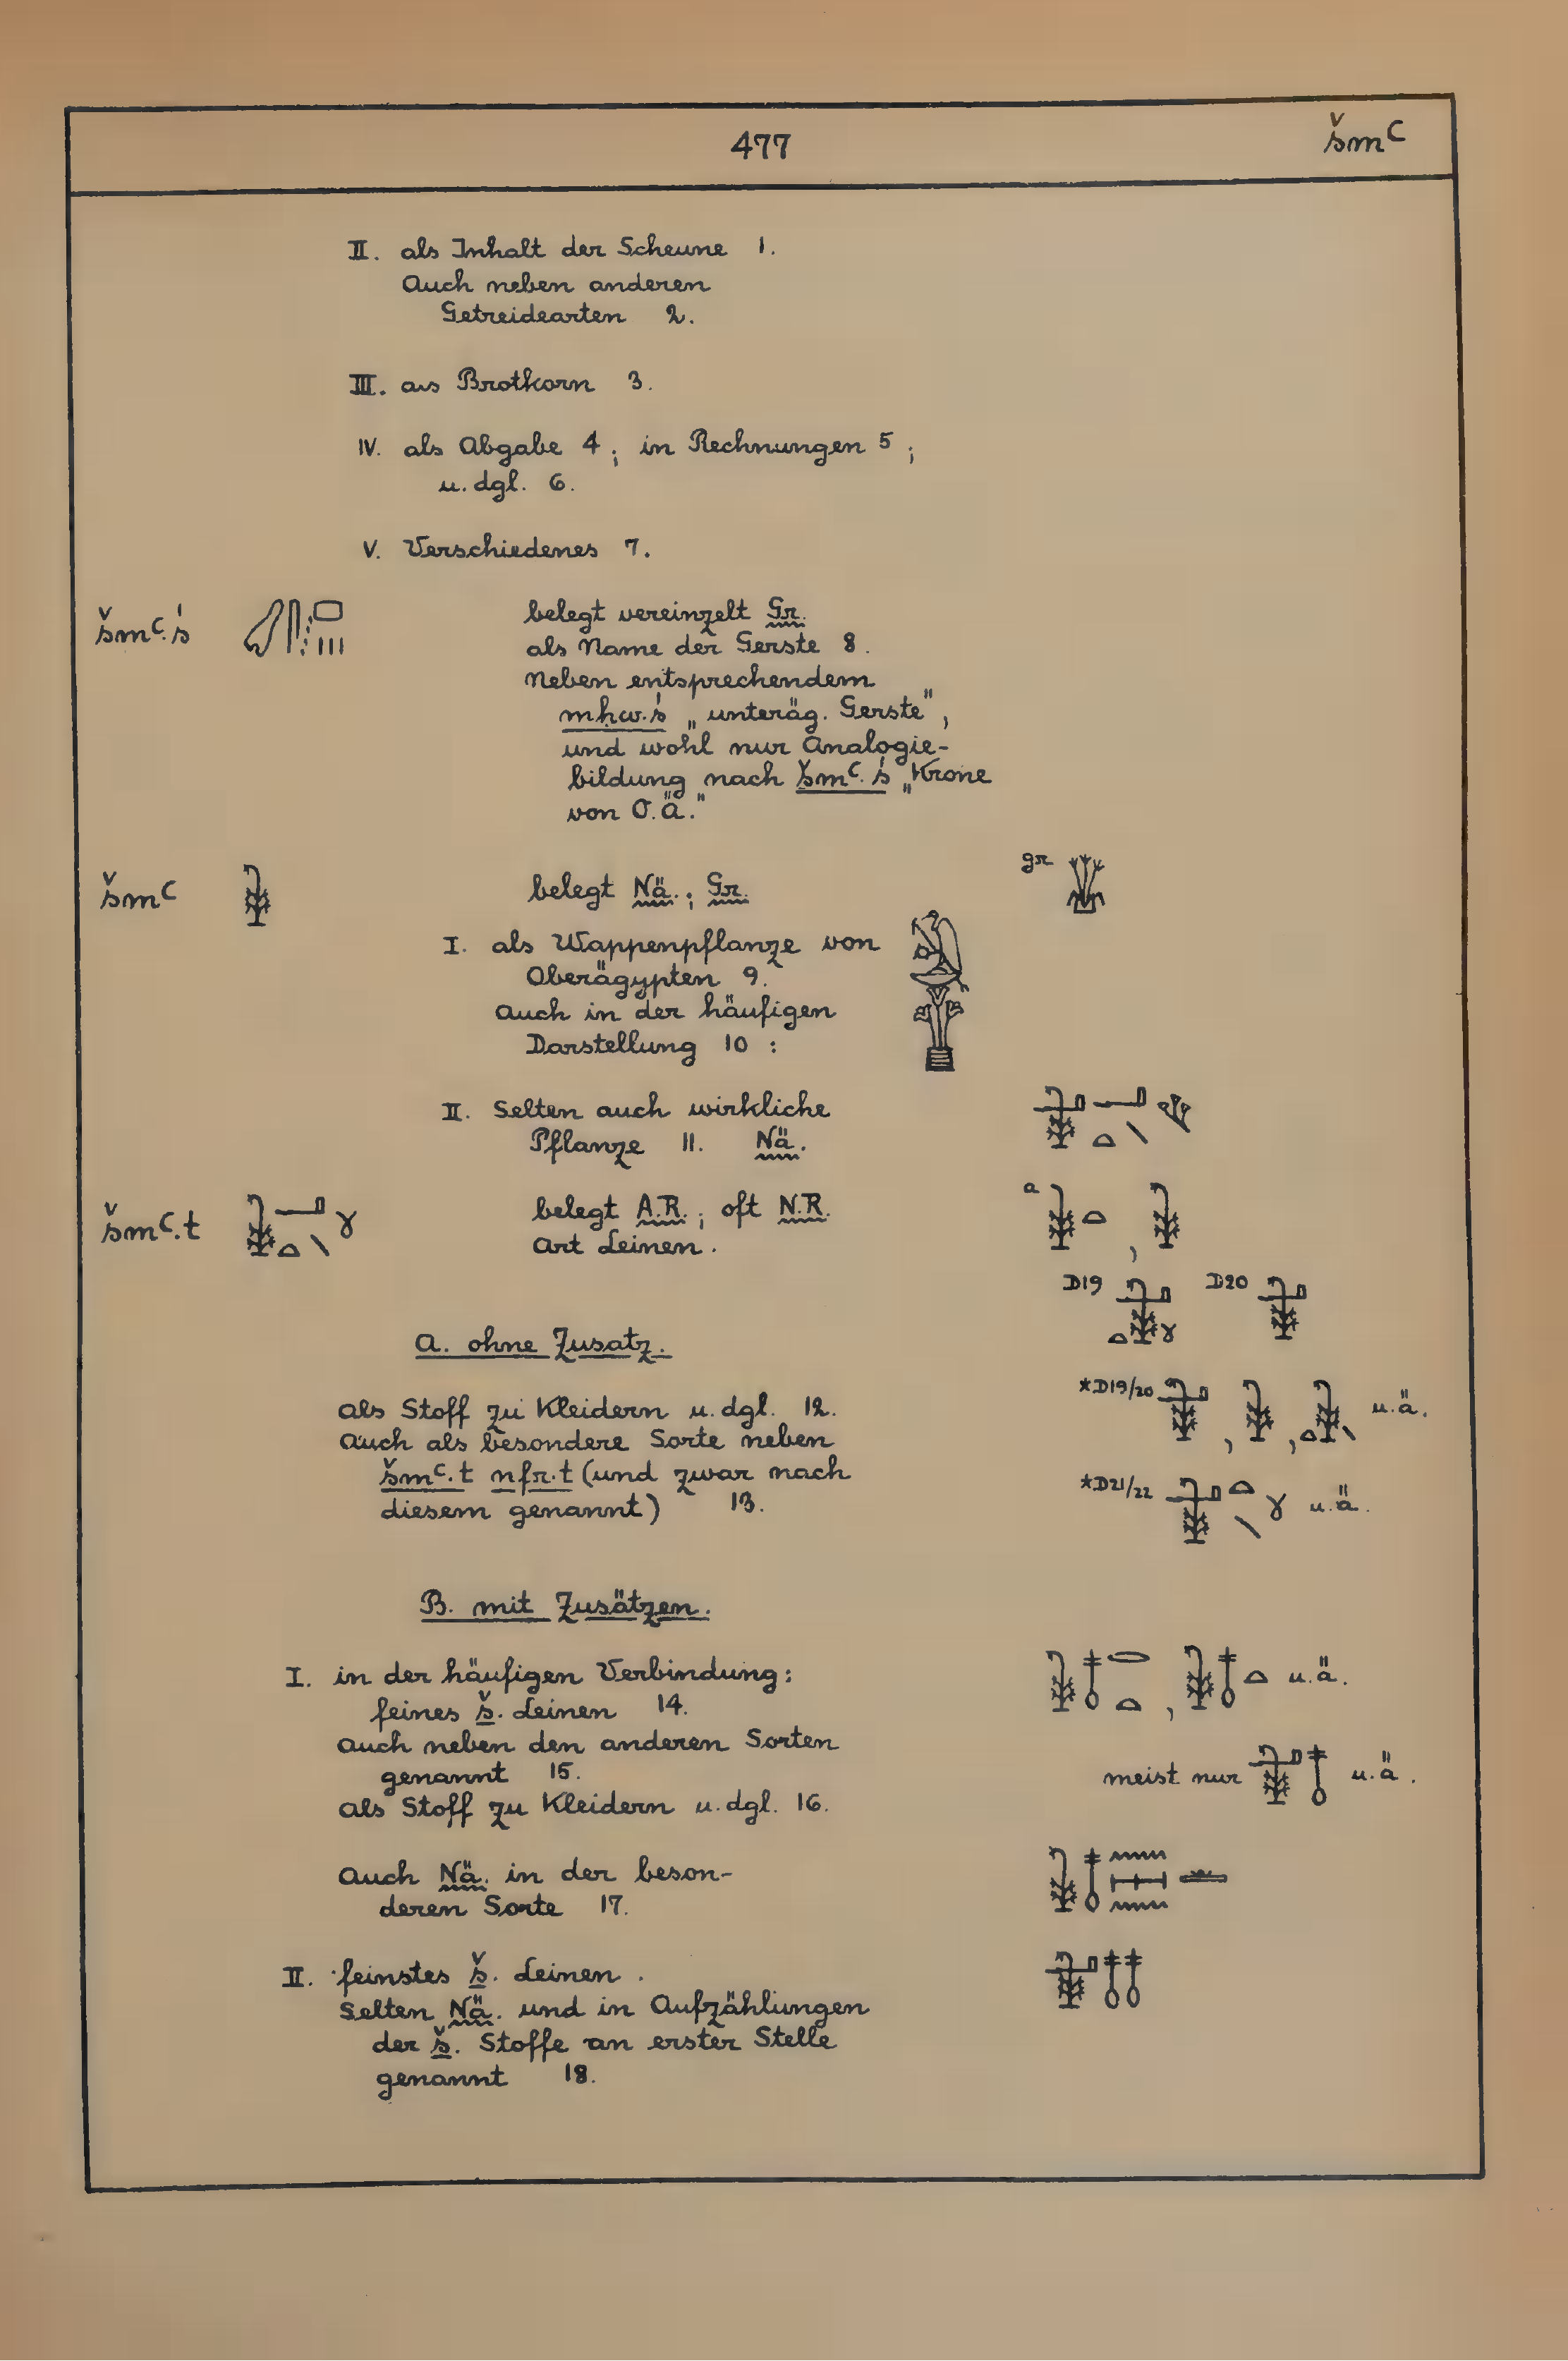 477
šmꜥ
II. als Inhalt der Scheune 1.
Auch neben anderen
Getreidearten 2.
III. aus Brotkorn 3.
IV. als Abgabe 4; in Rechnungen 5;
u. dgl. 6.
V. Verschiedenes 7.
šmꜥ.ś
belegt vereinzelt Gr.
als Name der Gerste 8.
Neben entsprechendem
mḥw.ś „unteräg. Gerste",
und wohl nur Analogie-
bildung nach šmꜥ.ś „Krone
von O.ä."
šmꜥ
belegt Nä.; Gr.
gr
I. als Wappenpflanze von
Oberägypten 9.
Auch in der häufigen
Darstellung 10 :
II. Selten auch wirkliche
Pflanze 11. Nä.
šmꜥ.t
belegt A.R.; oft N.R.
a
Art Leinen.
D19 D20
A. ohne Zusatz.
*D19/20 u.ä.
als Stoff zu Kleidern u. dgl. 12.
Auch als besondere Sorte neben
šmꜥ.t nfr.t (und zwar nach
diesem genannt) 13.
*D21/22 u.ä.
B. mit Zusätzen.
I. in der häufigen Verbindung:
u.ä.
feines š. Leinen 14.
Auch neben den anderen Sorten
genannt 15.
meist nur u.ä.
als Stoff zu Kleidern u. dgl. 16.
Auch Nä. in der beson-
deren Sorte 17.
II. feinstes š. Leinen.
Selten Nä. und in Aufzählungen
der š. Stoffe an erster Stelle
genannt 18.